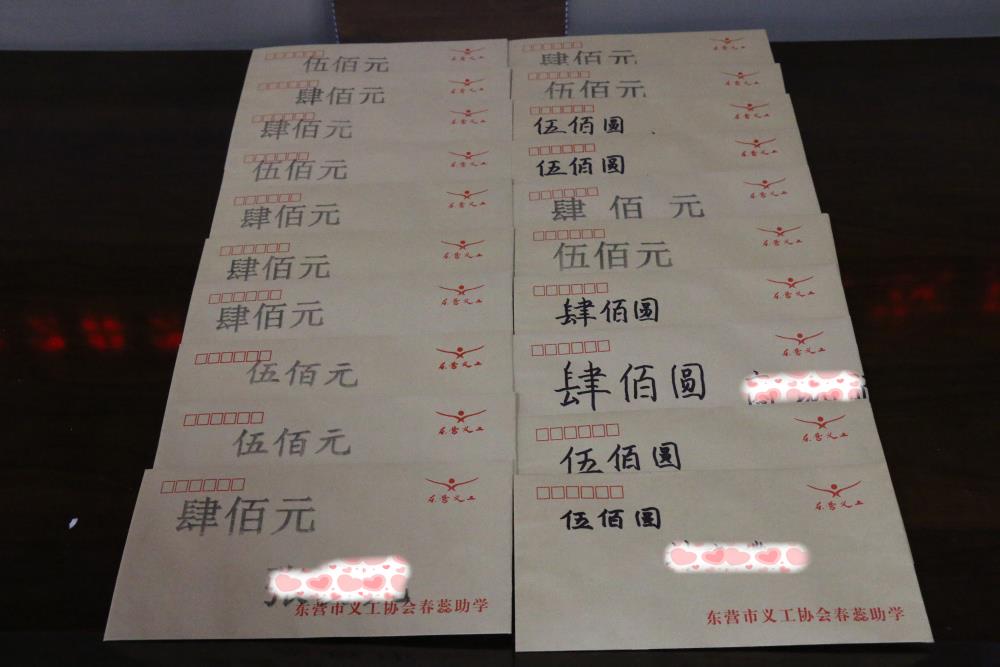 伍佰元
东营义工
肆佰元
东营义工
肆佰元
东营义工
伍佰元
东营义工
肆佰元
东营义工
肆佰元
东营义工
肆佰元
东营义工
伍佰元
东营义工
伍佰元
东营义工
肆佰元
东营义工
张
东营市义工协会春蕊助学
肆佰元
东营义工
伍佰元
东营义工
伍佰圆
东营义工
伍佰圆
东营义工
肆佰元
东营义工
伍佰元
东营义工
肆佰圆
东营义工
肆佰圆
东营义工
伍佰圆
东营义工
伍佰圆
东营义工
东营市义工协会春蕊助学